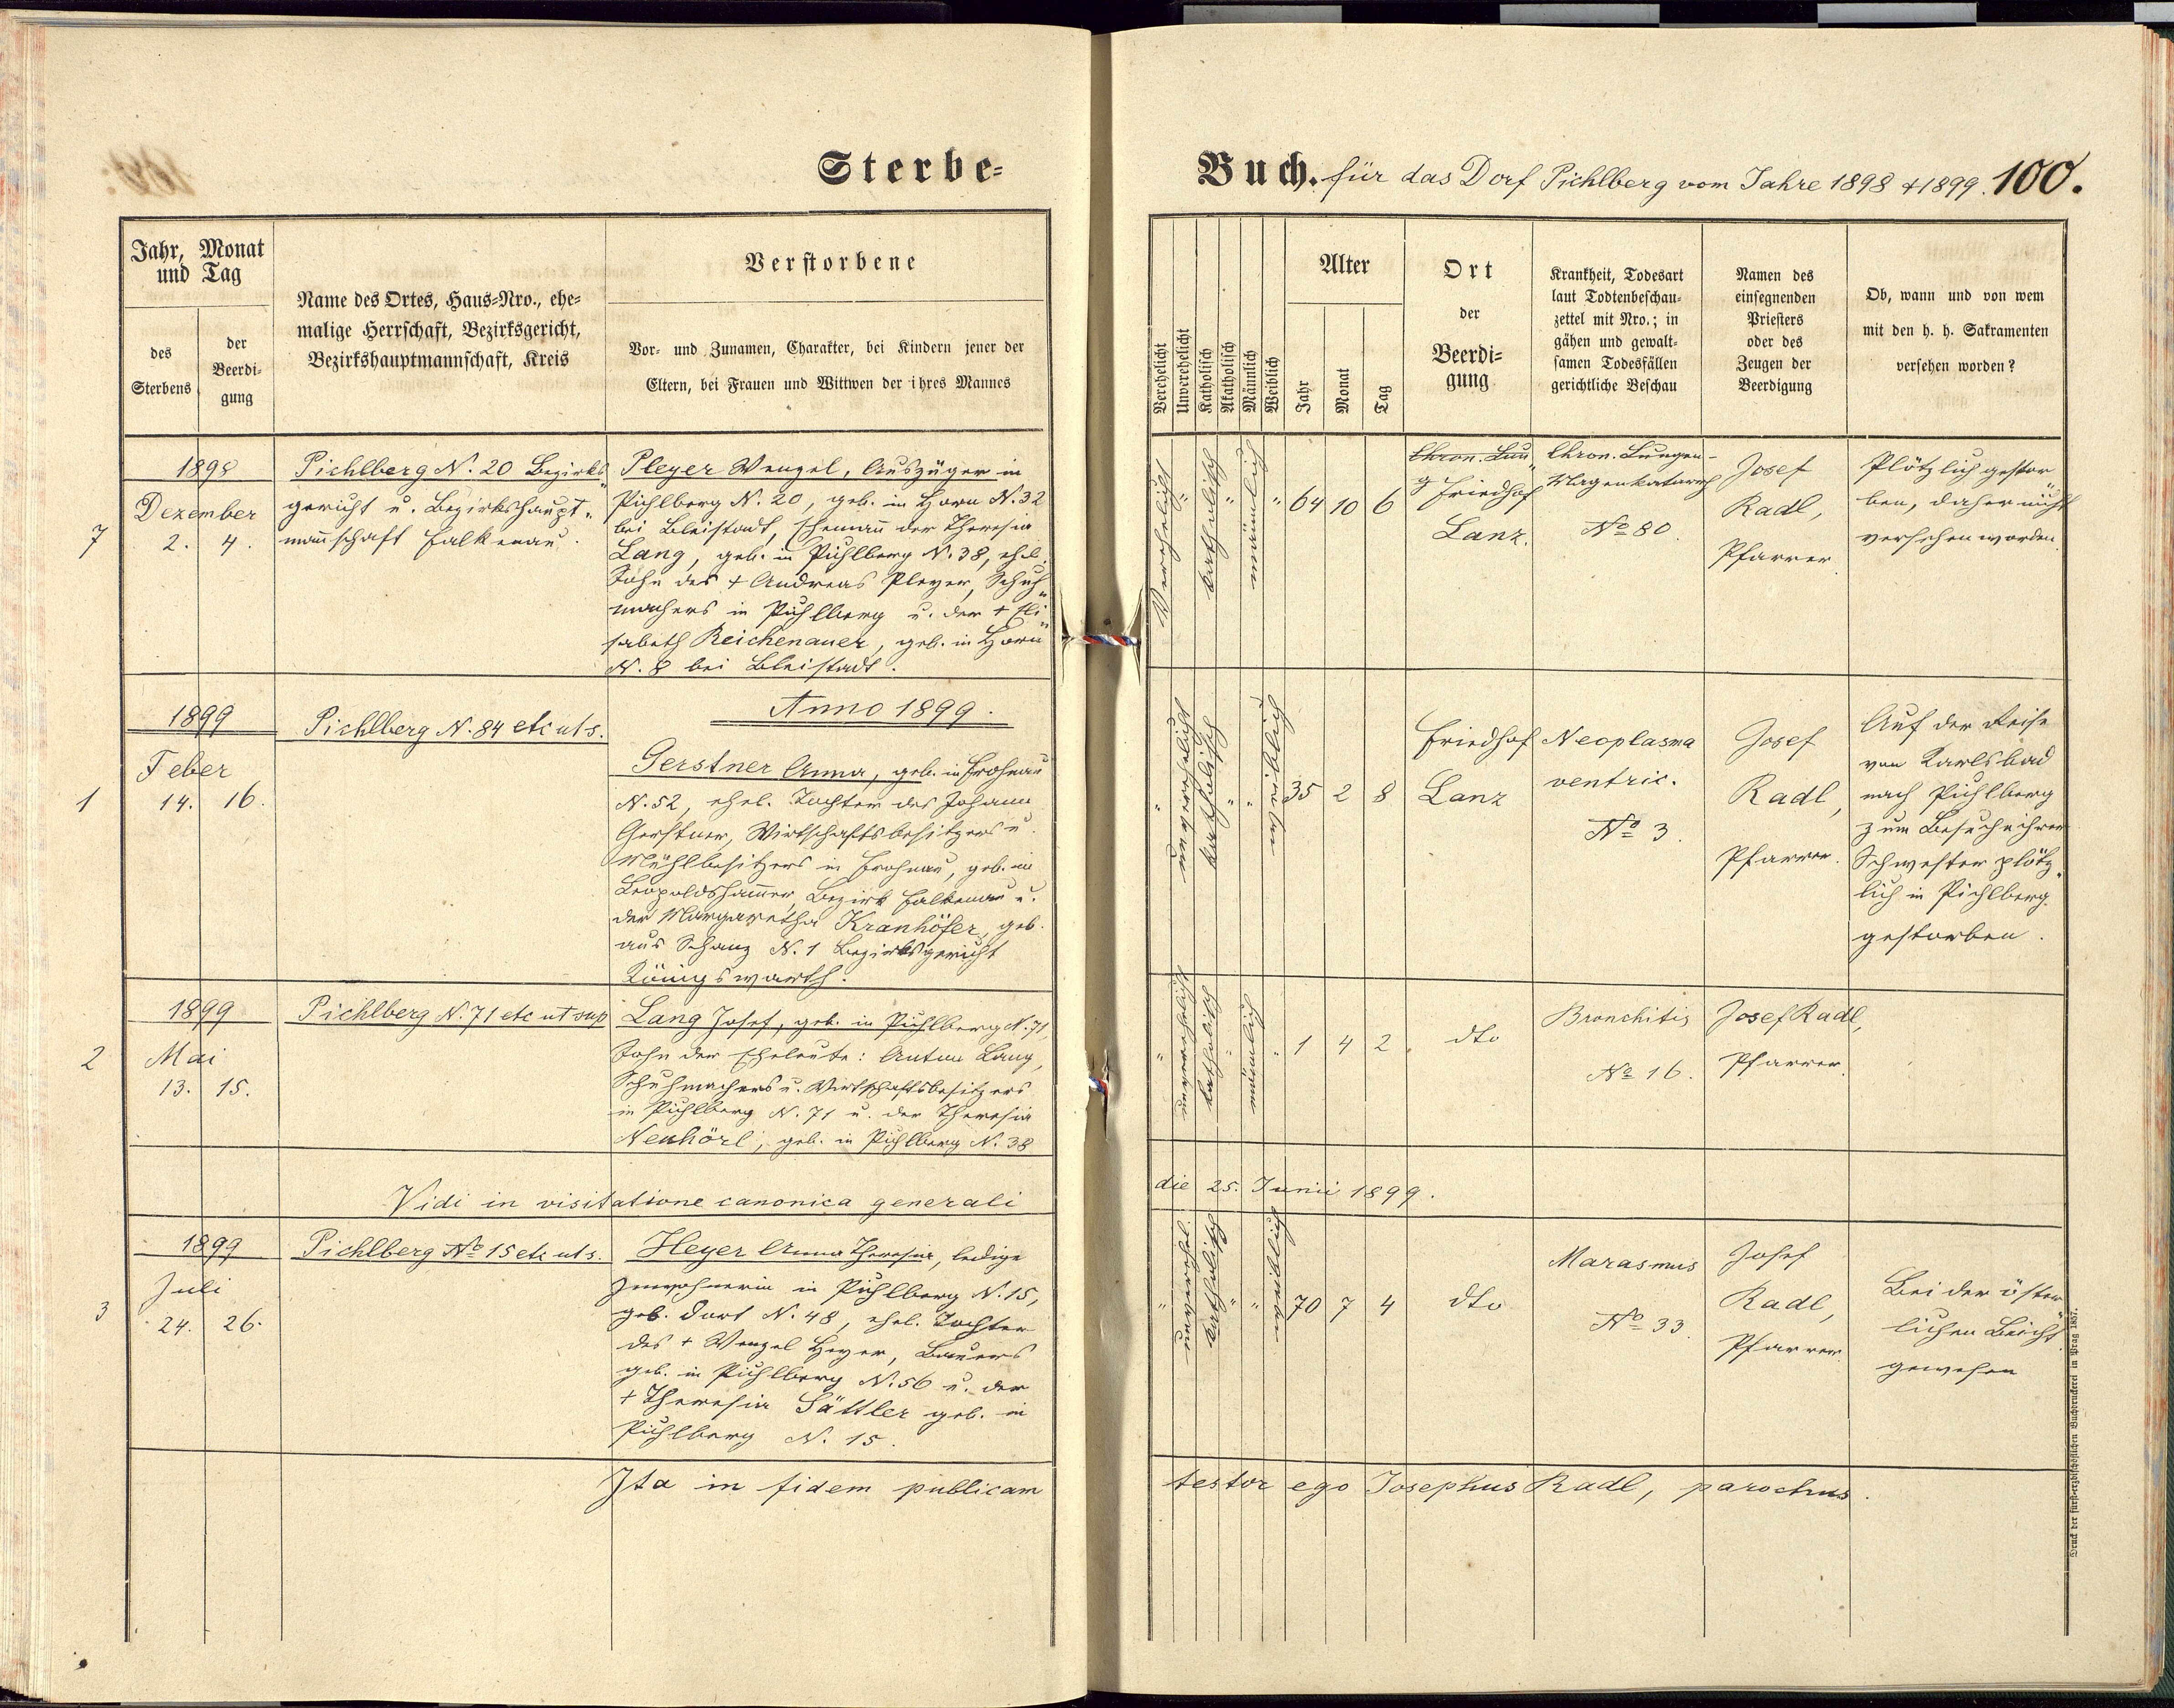 Sterbe-
Jahr, Monat
und Tag
des
Sterbens
der
Beerdi-
gung
Name des Ortes, Haus-Nro., ehe-
malige Herrschaft, Bezirksgericht,
Bezirkshauptmannschaft, Kreis
Verstorbene
Vor- und Zunamen, Charakter, bei Kindern jener der
Eltern, bei Frauen und Wittwen der ihres Mannes
7
1898
Dezember
2. 4.
Pichlberg N. 20 Bezirks„
gericht u. Bezirkshaupt„
mannschaft Falkenau.
Pleyer Wenzel, Auszüger in
Pichlberg N. 20, geb. in Horn N. 32
bei Bleistadt, Ehemann der Theresia
Lang, geb. in Pichlberg N. 38, ehel.
Sohn des + Andreas Pleyer, Schuh„
machers in Pichlberg u. der + Eli„
sabeth Reichenauer, geb. in Horn
N. 8 bei Bleistadt.
1
1899
Feber
14. 16.
Pichlberg N. 84 etc ut s.
Anno 1899.
Gerstner Anna, geb. in Frohnau
N. 52, ehel. Tochter des Johann
Gerstner, Wirtschaftsbesitzers u.
Mühlbesitzers in Frohnau, geb. in
Leopoldshammer, Bezirk Falkenau u.
der Margaretha Kranhöfer, geb.
aus Schanz N. 1 Bezirksgericht
Königswarth.
2
1899
Mai
13. 15.
Pichlberg N. 71 etc ut sup
Lang Josef, geb. in Pichlberg N. 71,
Sohn der Eheleute: Anton Lang,
Schuhmachers u. Wirtschaftsbesitzers
in Pichlberg N. 71 u. der Theresia
Neuhörl, geb. in Pichlberg N. 38
Vidi in visitatione canonica generali
3
1899
Juli
24. 26.
Pichlberg No 15 etc ut s.
Heyer Anna Theresia, ledige
Inwohnerin in Pichlberg N. 15,
geb. dort N. 48, ehel. Tochter
des + Wenzel Heyer, Bauers
geb. in Pichlberg N. 56 u. der
+ Theresia Sättler geb. in
Pichlberg N. 15.
Ita in fidem publicam
Buch. für das Dorf Pichlberg vom Jahre 1898 + 1899. 100.
Verehelicht
Unverehelicht
Katholisch
Akatholisch
Männlich
Weiblich
Alter
Jahr
Monat
Tag
Ort
der
Beerdi-
gung
Krankheit, Todesart
laut Todtenbeschau-
zettel mit Nro.; in
gähen und gewalt-
samen Todesfällen
gerichtliche Beschau
Namen des
einsegnenden
Priesters
oder des
Zeugen der
Beerdigung
Ob, wann und von wem
mit den h. h. Sakramenten
versehen worden?
Verehelicht " katholisch " männlich " 64 10 6
Chron. Lun„
g Friedhof
Lanz.
Chron. Lungen-
Magenkatarrh
No 80.
Josef
Radl,
Pfarrer.
Plötzlich gestor„
ben, daher nicht
versehen worden.
" unverehelicht katholisch " " weiblich 35 2 8
Friedhof
Lanz
Neoplasma
ventric.
No 3.
Josef
Radl,
Pfarrer.
Auf der Reise
von Karlsbad
nach Pichlberg
zum Besuche ihrer
Schwester plötz„
lich in Pichlberg
gestorben.
" unverehelicht katholisch " männlich " 1 4 2
dto
Bronchitis
No 16.
Josef Radl,
Pfarrer.
die 25. Junii 1899.
" unverehel. katholisch " " weiblich 70 7 4
dto
Marasmus
No 33.
Josef
Radl,
Pfarrer.
Bei der öster„
lichen Beicht
gewesen
testor ego Josephus Radl, parochus.
Druck der fürst-erzbischöflichen Buchdruckerei in Prag 1857.